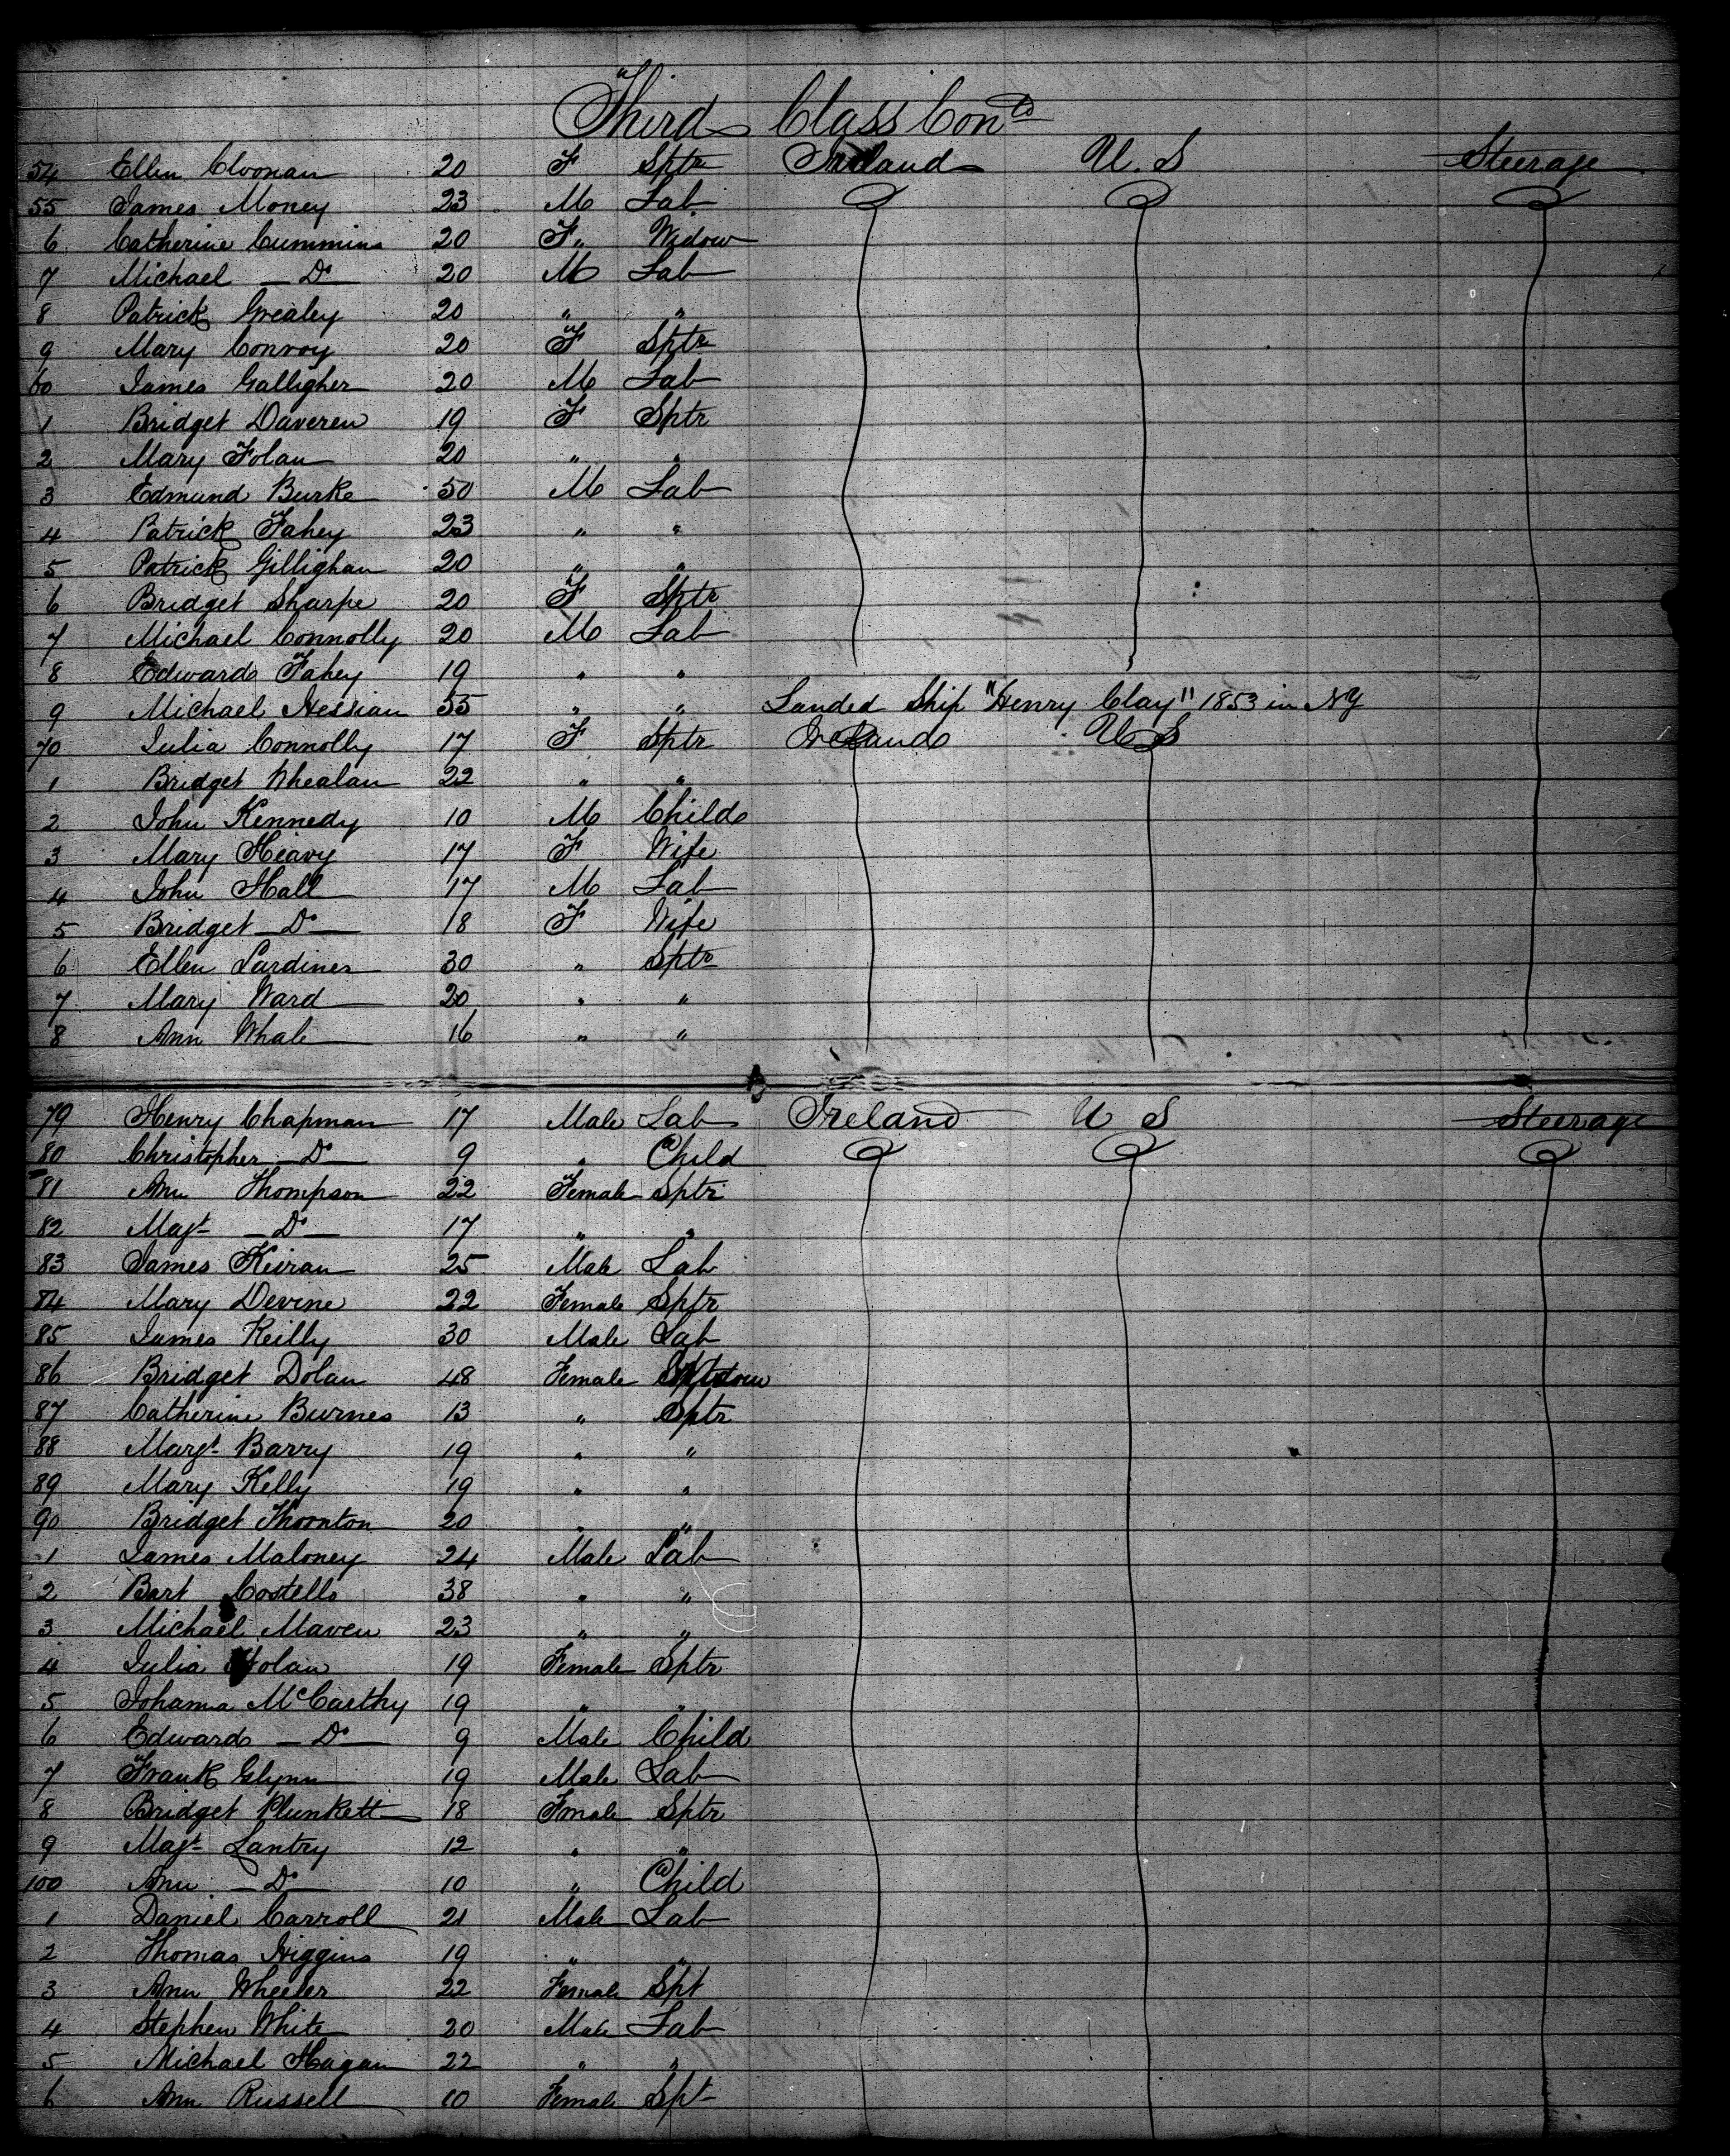 Third Class Con^td
54 Ellen Cloonan 20 F Sptr Ireland U. S Steerage
55 James Money 23 M Lab
6 Catherine Cummins 20 F „ Widow
7 Michael — Do — 20 M Lab
8 Patrick Grealey 20 " "
9 Mary Conroy 20 F Sptr
60 James Galligher 20 M Lab
1 Bridget Daveren 19 F Sptr
2 Mary Folan 20 " "
3 Edmund Burke 50 M Lab
4 Patrick Fahey 23 " "
5 Patrick Gillighan 20 " "
6 Bridget Sharpe 20 F Sptr
7 Michael Connolly 20 M Lab
8 Edward Fahey 19 " "
9 Michael Hessian 55 " " Landed Ship "Henry Clay" 1853 in NY
70 Julia Connolly 17 F Sptr Ireland U S
1 Bridget Whealan 22 " "
2 John Kennedy 10 M Child
3 Mary Heavy 17 F Wife
4 John Hall 17 M Lab
5 Bridget — Do — 18 F Wife
6 Ellen Lardiner 30 " Sptr
7 Mary Ward 20 " "
8 Ann Whale 16 " "
79 Henry Chapman 17 Male Lab Ireland U S Steerage
80 Christopher — Do — 9 " Child
81 Ann Thompson 22 Female Sptr
82 Magt — Do — 17 " "
83 James Kieran 25 Male Lab
84 Mary Devine 22 Female Sptr
85 James Reilly 30 Male Lab
86 Bridget Dolan 48 Female Widow
87 Catherine Burnes 13 " Sptr
88 Margt Barry 19 " "
89 Mary Kelly 19 " "
90 Bridget Thornton 20 " "
1 James Maloney 24 Male Lab
2 Bart Costello 38 " "
3 Michael Maven 23 " "
4 Julia 19 Female Sptr
5 Johanna McCarthy 19 " "
6 Edward — Do — 9 Male Child
7 Frank Glynn 19 Male Lab
8 Bridget Plunkett 18 Fmale Sptr
9 Magt Lantry 12 " "
100 Ann — Do — 10 " Child
1 Daniel Carroll 21 Male Lab
2 Thomas Higgins 19 " "
3 Ann Wheeler 22 Female Spt
4 Stephen White 20 Male Lab
5 Michael Hagan 22 " "
6 Ann Russell 10 Female Spt